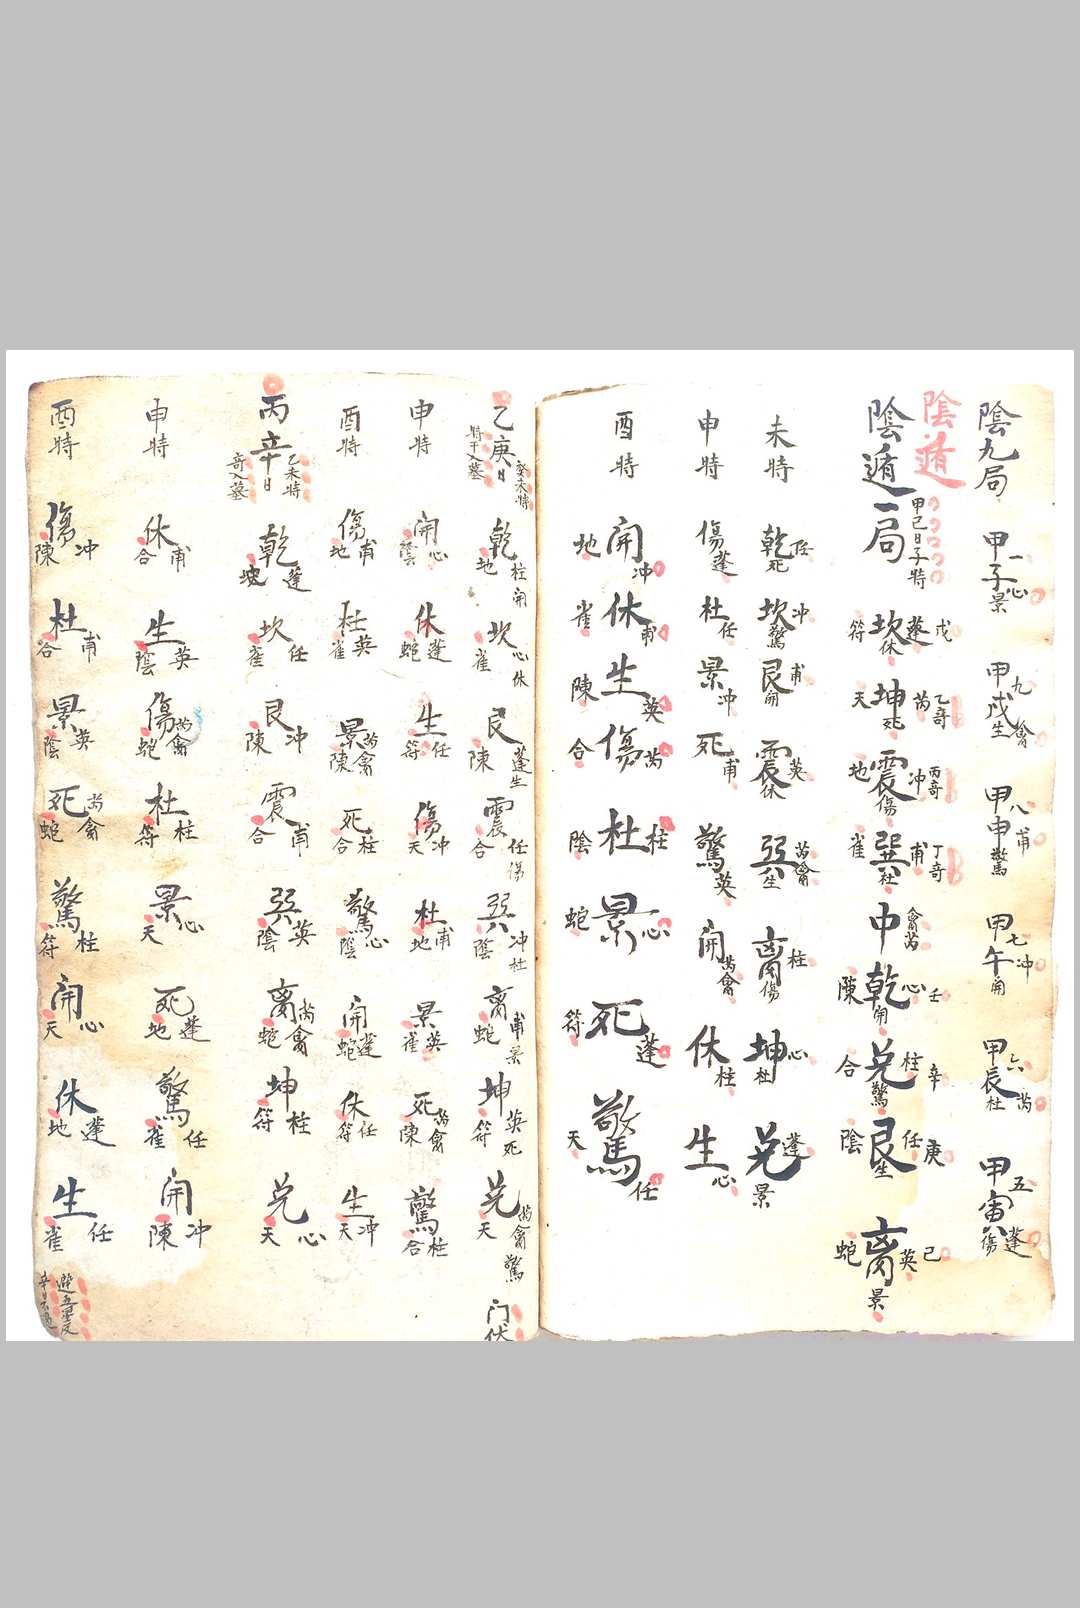 陰九局 甲一子心景 甲九戌禽生 甲八申甫驚 甲七午冲開 甲六辰芮杜 甲五寅蓬傷
陰遁
陰遁一局 甲己日子時
坎蓬戊符休 坤芮乙奇天死 震冲丙奇地傷 巽甫丁奇雀杜 中禽芮 乾心壬陳開 兌柱辛合驚 艮任庚陰生 离英己蛇景
未時 乾任死 坎冲驚 艮甫開 震英休 巽芮禽生 离柱傷 坤心杜 兌蓬景
申時 傷蓬 杜任 景冲 死甫 驚英 開芮禽 休柱 生心
酉時 開冲地 休甫雀 生英陳 傷芮合 杜柱陰 景心蛇 死蓬符 驚任天
乙庚日 癸未時 時干入墓
乾柱開地 坎心休雀 艮蓬生陳 震任傷合 巽冲杜陰 离甫景蛇 坤英死符 兌芮禽驚天 门伏
申時 開心陰 休蓬蛇 生任符 傷冲天 杜甫地 景英雀 死芮禽陳 驚柱合
酉時 傷甫地 杜英雀 景芮禽陳 死柱合 驚心陰 開蓬蛇 休任符 生冲天
丙辛日 乙未時 奇入墓
乾蓬地 坎任雀 艮冲陳 震甫合 巽英陰 离芮禽蛇 坤柱符 兌心天
申時 休甫合 生英陰 傷芮禽蛇 杜柱符 景心天 死蓬地 驚任雀 開冲陳
酉時 傷冲陳 杜甫合 景英陰 死芮禽蛇 驚柱符 開心天 休蓬地 生任雀